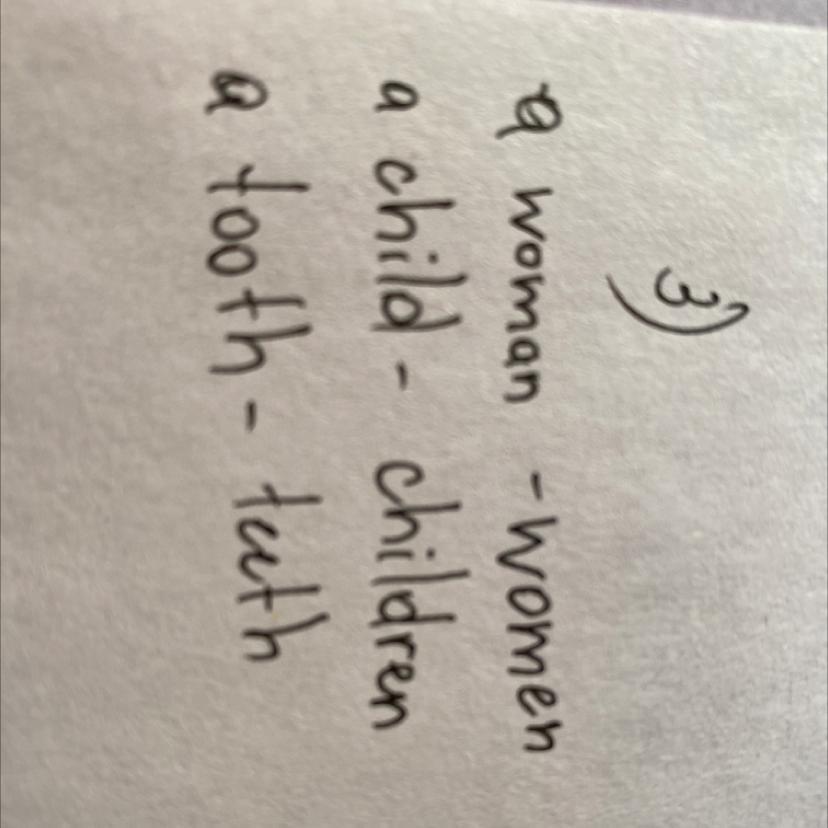 3)
a woman - women
a child - children
a tooth - teeth